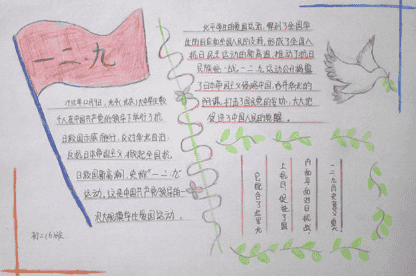 一二·九
1935年12月9日,北平(北京)大中学生数
千人在中国共产党的领导下举行了抗
日救国示威游行,反对华北自治,
反抗日本帝国主义,掀起全国抗
日救国新高潮,史称"一二·九"
运动,这是中国共产党领导的一
次大规模学生爱国运动。
初二(6)班
北平学生的爱国运动,得到了全国学
生的响应和全国人民的支持,形成了全国人
民抗日民主运动的新高潮,推动了抗日
民族统一战。一二·九运动公开揭露
了日本帝国主义侵略中国,吞并华北的
阴谋,打击了国民党的妥协,大大地
促进了中国人民的觉醒。
一二九历史意义重大
内和平而对日抗战
上抗日,促进了国
它配合了北